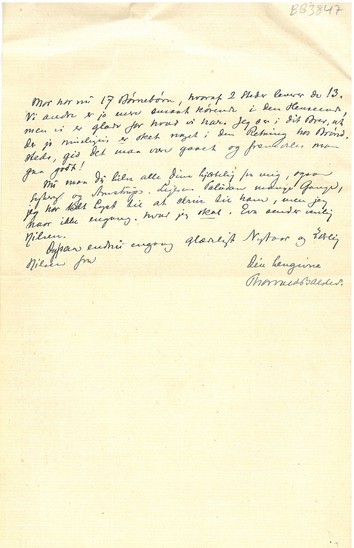 BB3847
Mor har nu 17 Børnebørn, hvoraf 2 Steder leverer de 13.
Vi andre er jo mere smaat kørende i den Henseende,
men vi er glade for hvad vi har. Jeg ser i dit Brev, at
der jo rimeligvis er sket noget i den Retning hos Brønd-
steds, gid det maa være gaaet og fremdeles maa
gaa godt!
Nu maa Du hilse alle dine hjertelig fra mig, ogsaa
og Armstrups. Ligesom mange Gange,
jeg har skal Lyst til at skrive til ham, men jeg
naar ikke engang, hvad jeg skal. Eva sender venlig
Hilsen.
Ogsaa endnu engang glædeligt Nytaar og kærlig
Hilsen fra
din hengivne
Thorvald Balslev.